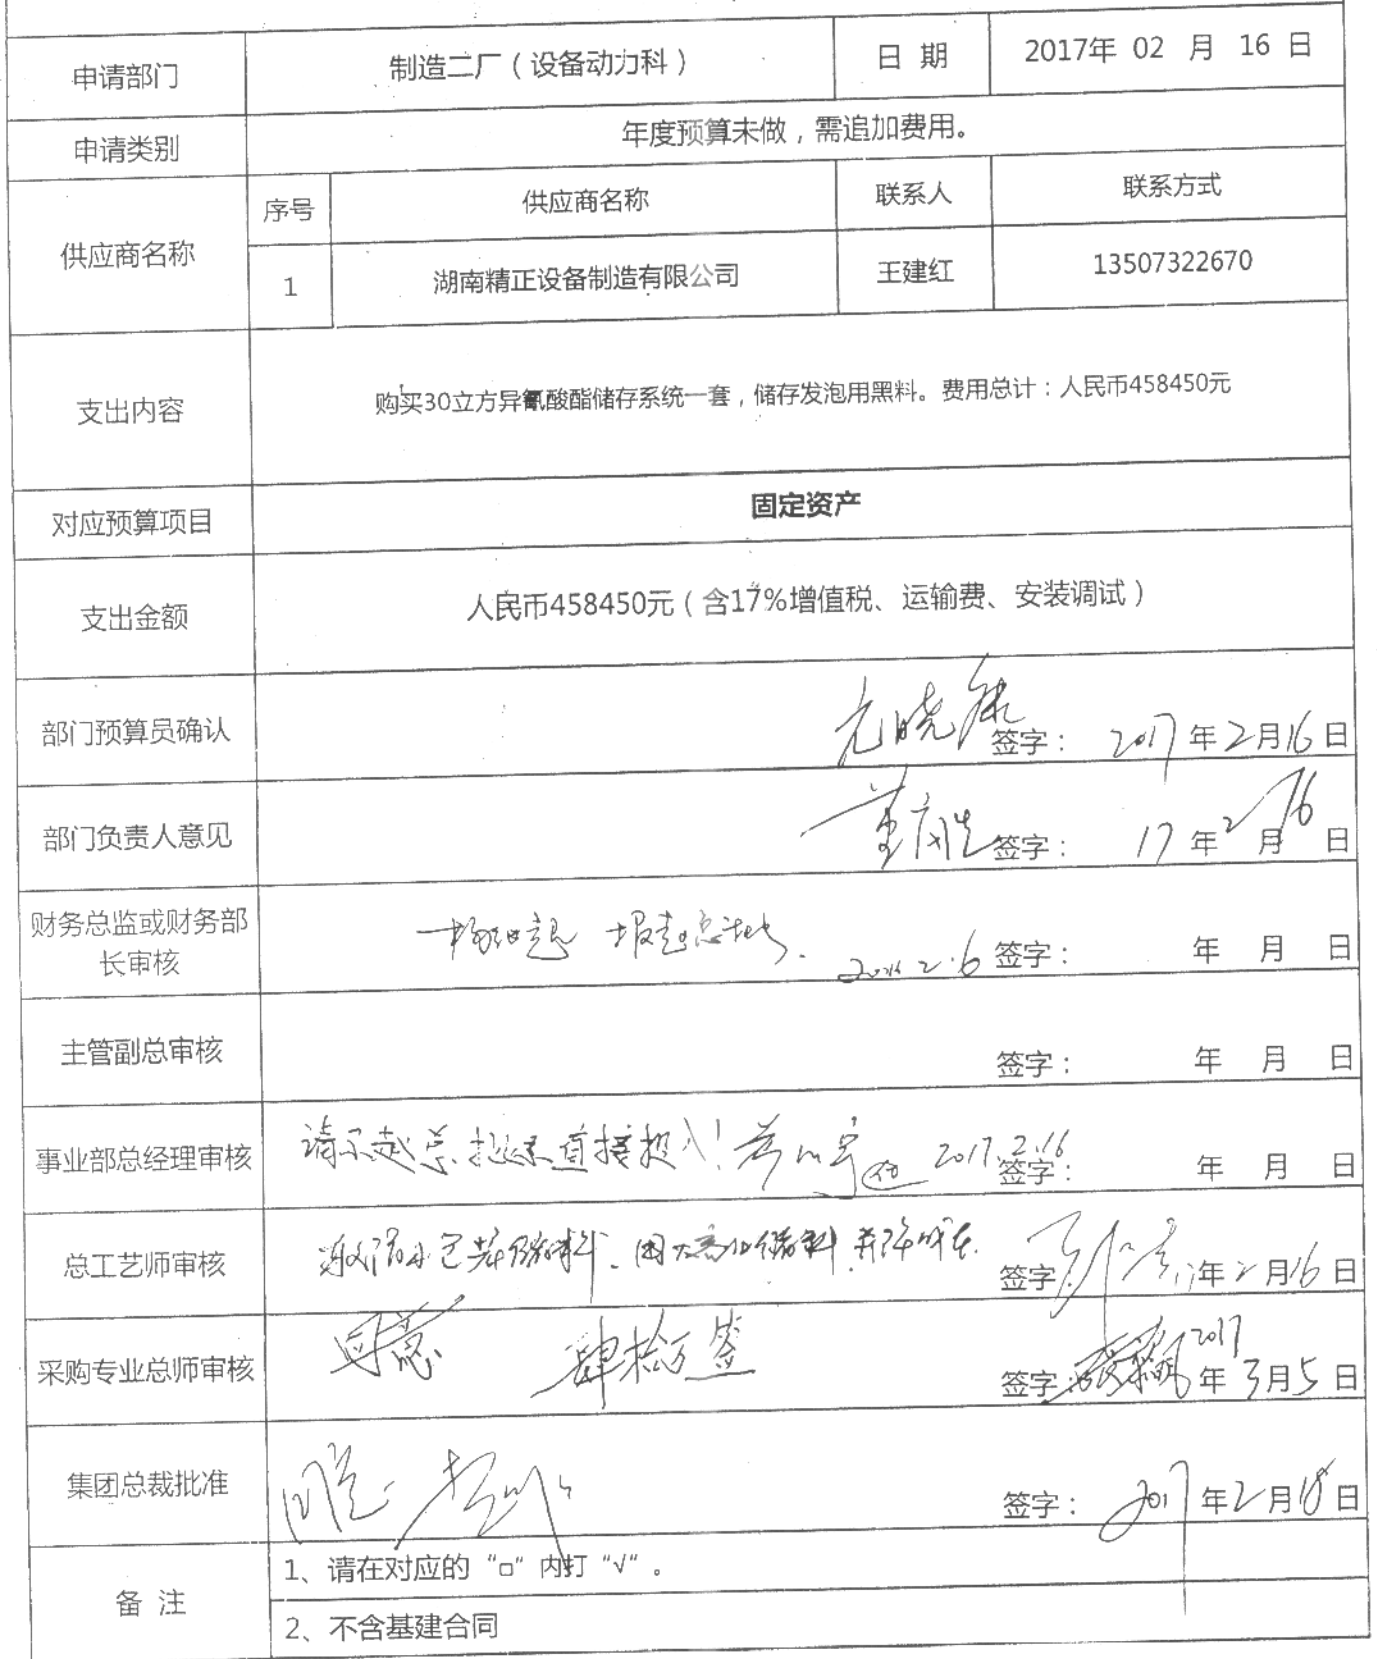 申请部门 制造二厂（设备动力科） 日 期 2017年 02 月 16 日
申请类别 年度预算未做，需追加费用。
供应商名称 序号 供应商名称 联系人 联系方式
1 湖南精正设备制造有限公司 王建红 13507322670
支出内容 购买30立方异氰酸酯储存系统一套，储存发泡用黑料。费用总计：人民币458450元
对应预算项目 固定资产
支出金额 人民币458450元（含17%增值税、运输费、安装调试）
部门预算员确认 签字： 2017 年 2 月 16 日
部门负责人意见 签字： 17 年 2 月 16 日
财务总监或财务部
长审核 签字： 年 月 日
主管副总审核 签字： 年 月 日
事业部总经理审核 请示赵总 直接投入！ 2017.2.16 签字： 年 月 日
总工艺师审核 签字 17 年 2 月 16 日
采购专业总师审核 同意 肆拾万 签 签字： 2017 年 3 月 5 日
集团总裁批准 签字： 2017 年 2 月 18 日
备 注 1、请在对应的“□”内打“√”。
2、不含基建合同